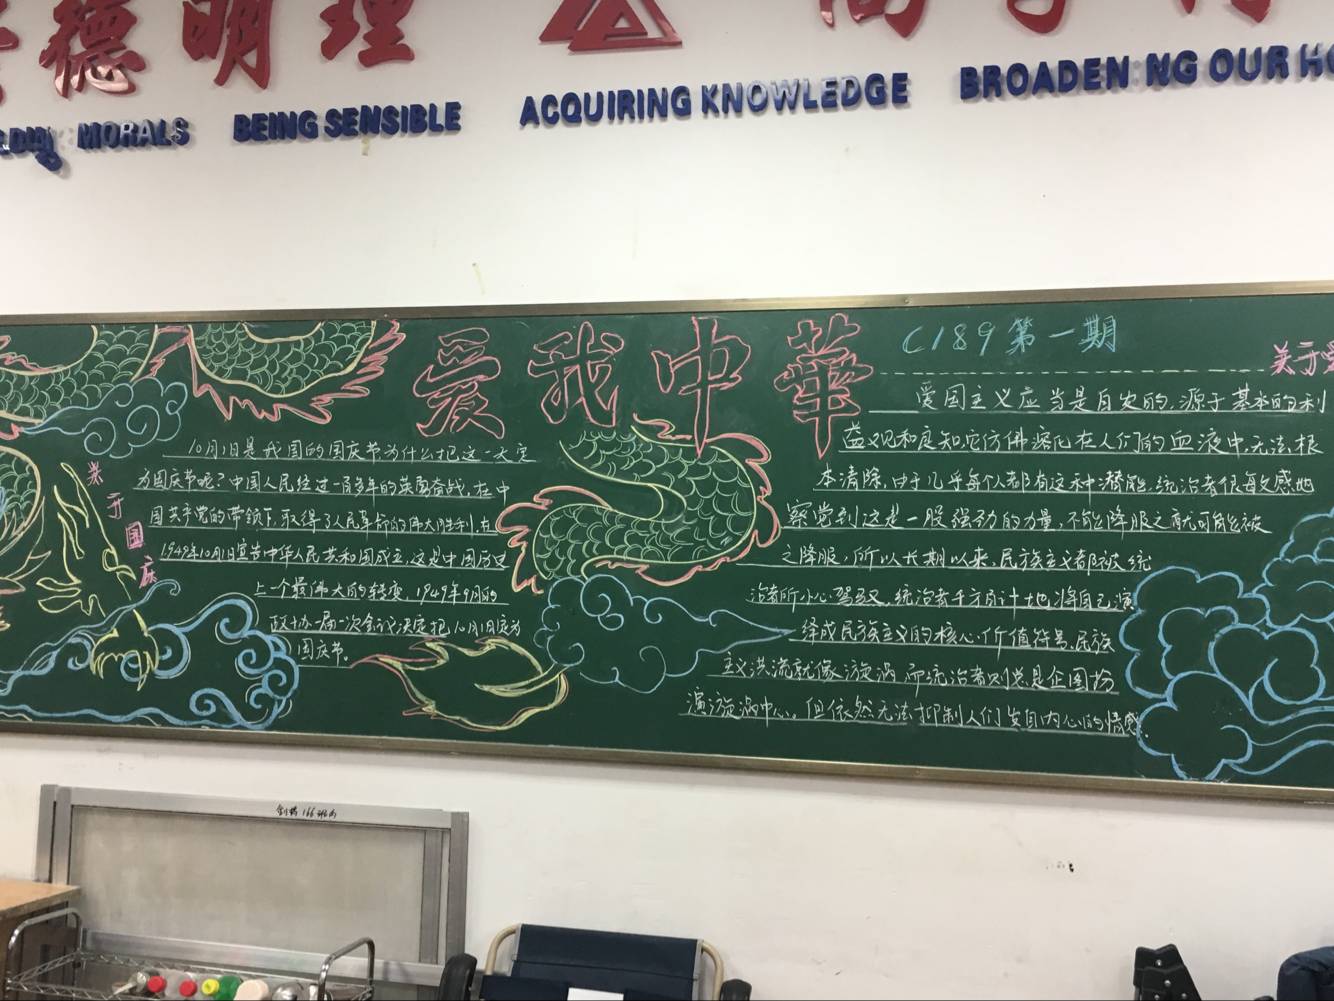 德明理
MORALS BEING SENSIBLE ACQUIRING KNOWLEDGE BROADEN NG OUR HO
爱我中華
C189第一期
关于国庆
10月1日是我国的国庆节为什么把这一天定
为国庆节呢?中国人民经过一百多年的英勇奋战,在中
国共产党的带领下,取得了人民革命的伟大胜利,在
1949年10月1日宣告中华人民共和国成立,这是中国历史
上一个最伟大的转变,1949年9月的
政协一届一次会议决定把10月1日定为
国庆节。
关于爱
爱国主义应当是自发的,源于基本的利
益观和良知它仿佛溶化在人们的血液中无法根
本清除,由于几乎每个人都有这种潜能,统治者很敏感地
察觉到这是一股强劲的力量,不能降服之就可能被
之降服,所以长期以来,民族主义都被统
治者所小心驾驭,统治者千方百计地将自己演
绎成民族主义的核心价值符号,民族
主义洪流就像漩涡而统治者则总是企图扮
演漩涡中心。但依然无法抑制人们发自内心的情感